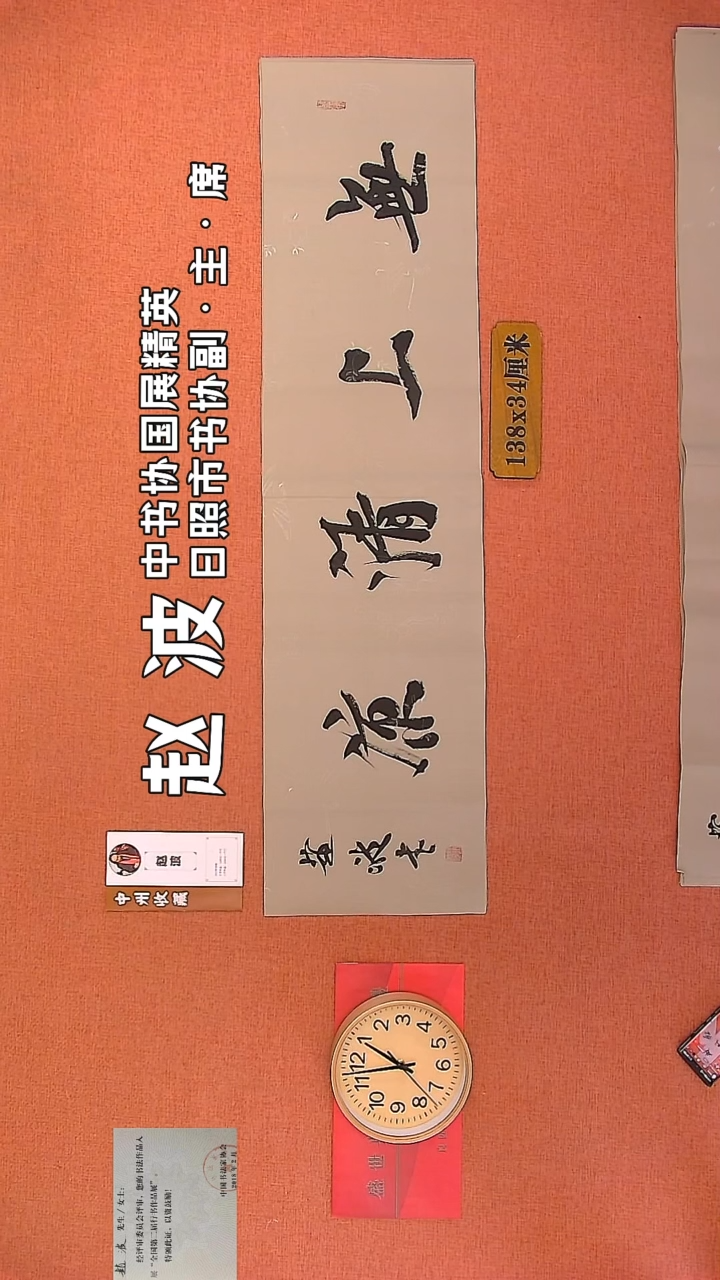 赵波
中书协国展精英
日照市书协副·主·席
無上清凉
赵波书
138x34厘米
中州收藏
赵波 先生/女士:
经评审委员会评审,您的书法作品入
展“全国第二届行书作品展”。
特颁此证,以资鼓励!
中国书法家协会
盛世
12
1
2
3
4
5
6
7
8
9
10
11